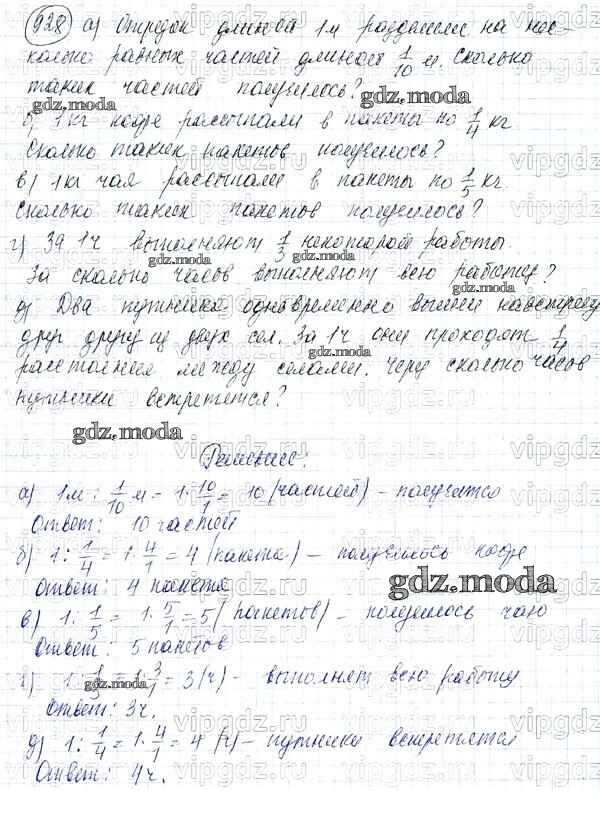 928 а) Отрезок длиной 1 м разделили на нес-
колько равных частей длиной 1/10 м. Сколько
таких частей получилось?
б) 1 кг кофе рассыпали в пакеты по 1/4 кг
Сколько таких пакетов получилось?
в) 1 кг чая рассыпали в пакеты по 1/5 кг.
Сколько таких пакетов получилось?
г) За 1 ч выполняют 1/3 некоторой работы.
За сколько часов выполняют всю работу?
д) Два путника одновременно вышли навстречу
друг другу из двух сел. За 1 ч они проходят 1/4
расстояния между селами. Через сколько часов
путники встретятся?
Решение:
а) 1 м : 1/10 м = 1 · 10/1 = 10 (частей) – получится
Ответ: 10 частей
б) 1 : 1/4 = 1 · 4/1 = 4 (пакета) – получилось кофе
Ответ: 4 пакета
в) 1 : 1/5 = 1 · 5/1 = 5 (пакетов) – получилось чаю
Ответ: 5 пакетов
г) 1 : 1/3 = 1 · 3/1 = 3 (ч) – выполнят всю работу
Ответ: 3 ч.
д) 1 : 1/4 = 1 · 4/1 = 4 (ч) – путники встретятся
Ответ: 4 ч.
gdz.moda
vipgdz.ru